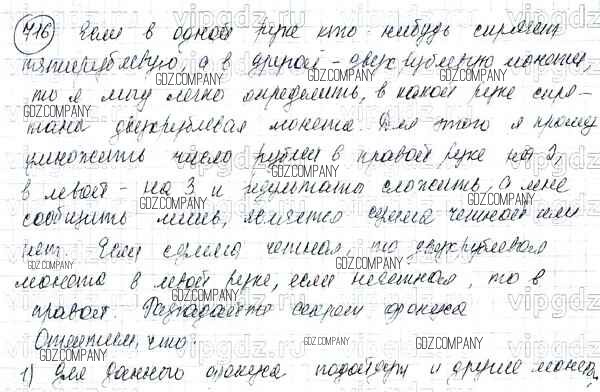 716 Если в одной руке кто-нибудь спрячет
пятирублевую, а в другой - двухрублевую монету,
то я могу легко определить, в какой руке спря-
тана двухрублевая монета. Для этого я прошу
умножить число рублей в правой руке на 2,
в левой - на 3 и результаты сложить, а мне
сообщить лишь, является сумма четной или
нет. Если сумма четная, то двухрублевая
монета в левой руке, если нечетная, то в
правой. Разгадайте секрет фокуса
Отметим, что:
1) Для данного фокуса подойдут и другие монеты
GDZ.COMPANY
vipgdz.ru